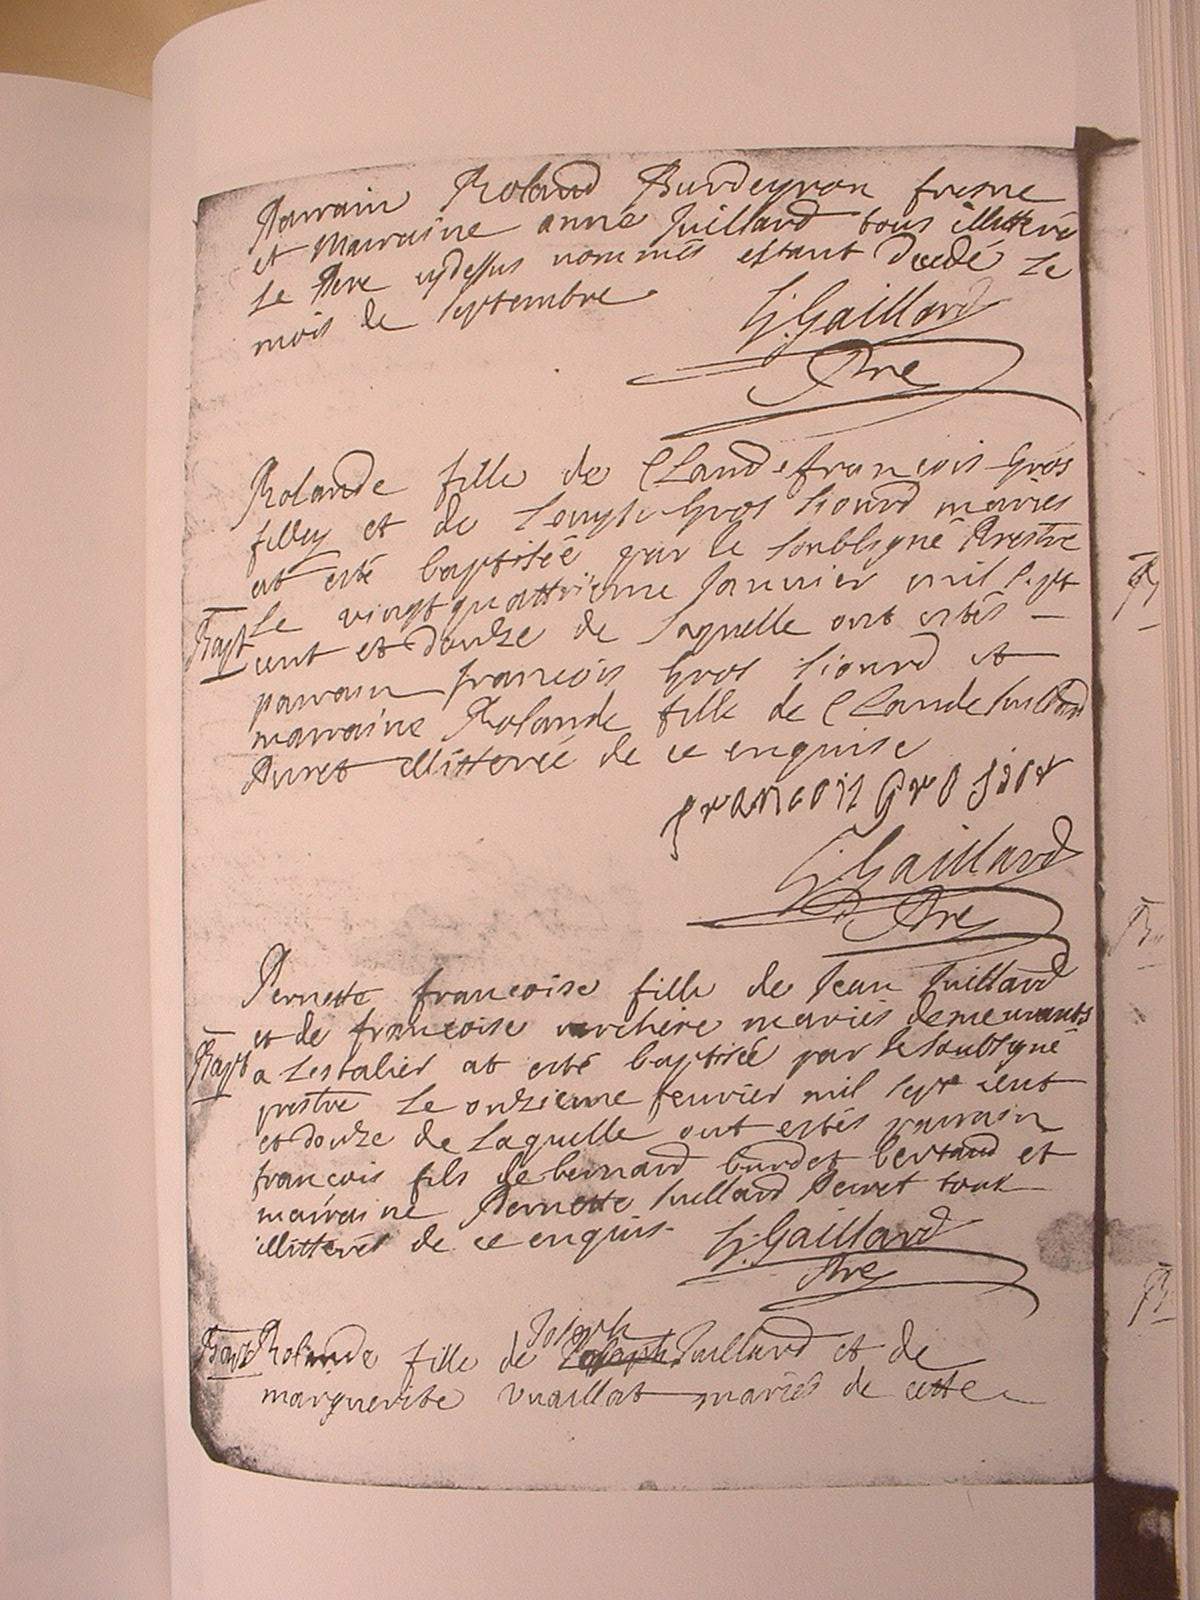 Parrain Roland Burdeyron fresne
et Marraine anne Juillard tous illitteré
Le Pere cydessus nommés estant decedé Le
mois de septembre
G. Gaillard
Pre
Rolande fille de Claude françois Gros
filley et de Gros Siourd mariés
at esté baptiseé par le soubsigné Prestre
Bapt Le vingt quattrieme Januier mil sept
cent et douze de laquelle ont estés
parrain françois Gros Siourd et
marraine Rolande fille de Claude Juillard
Puret illitereé de ce enquise
françois Gro sior
G. Gaillard
Pre
Pernette françoise fille de Jean Juillard
et de françoise verchere mariés demeurants
Bapt a Lestalier at esté baptiseé par le soubsigné
prestre Le onzieme feurier mil sept cent
et douze de Laquelle ont estés parrain
françois fils de bernard burdet bertaud et
marraine Pernette Juillard Peiret tous
illitterés de ce enquis
G. Gaillard
Pre
Joseph
Bapt Rolande fille de Juillard et de
marguerite Vuaillat mariés de cette